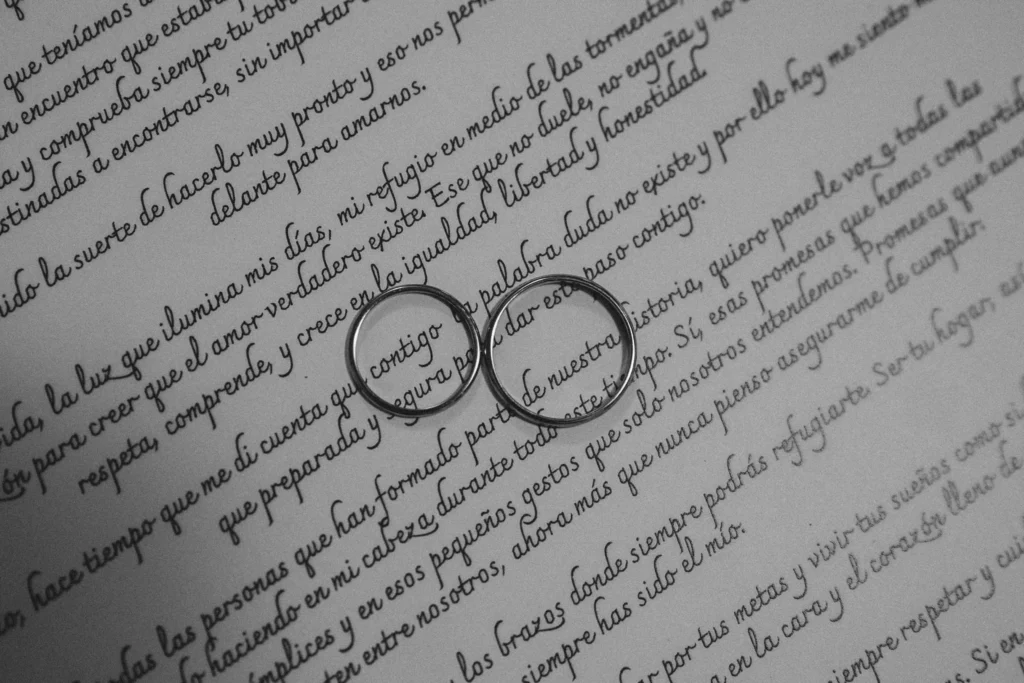 que teníamos
n encuentro que estaba
a y comprueba siempre tu
stinadas a encontrarse, sin importar
ido la suerte de hacerlo muy pronto y eso nos perm
delante para amarnos.
vida, la luz que ilumina mis días, mi refugio en medio de las tormentas,
ón para creer que el amor verdadero existe. Ese que no duele, no engaña y no
respeta, comprende, y crece en la igualdad, libertad y honestidad.
o, hace tiempo que me di cuenta que contigo la palabra duda no existe y por ello hoy me siento m
que preparada y segura pa dar este paso contigo.
odas las personas que han formado parte de nuestra istoria, quiero ponerle voz a todas las
do haciendo en mi cabeza durante todo este tiempo. Sí, esas promesas que hemos compartido
mplices y en esos pequeños gestos que solo nosotros entendemos. Promesas que aun
ten entre nosotros, ahora más que nunca pienso asegurarme de cumplir:
los brazos donde siempre podrás refugiarte. Ser tu hogar, as
siempre has sido el mío.
ar por tus metas y vivir tus sueños como si
a en la cara y el corazón lleno de
siempre respetar y cui
as. Si en